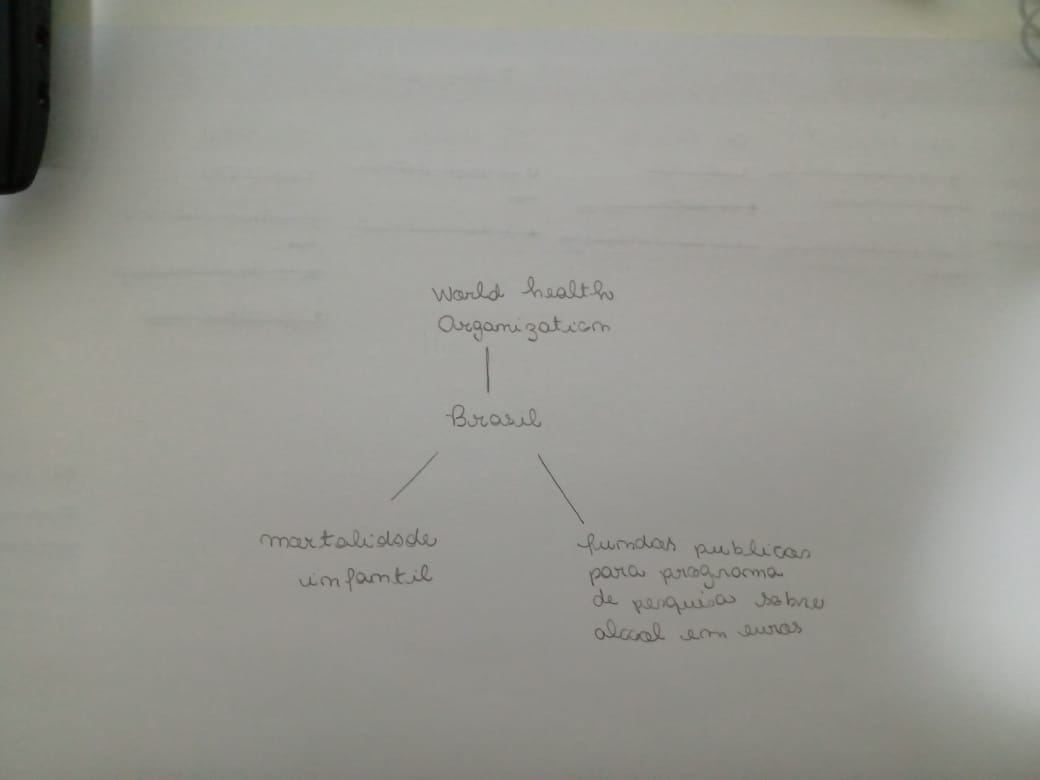 World health
Organization
Brasil
mortalidade
infantil
fundos publicos
para programa
de pesquisa sobre
alcool em euros